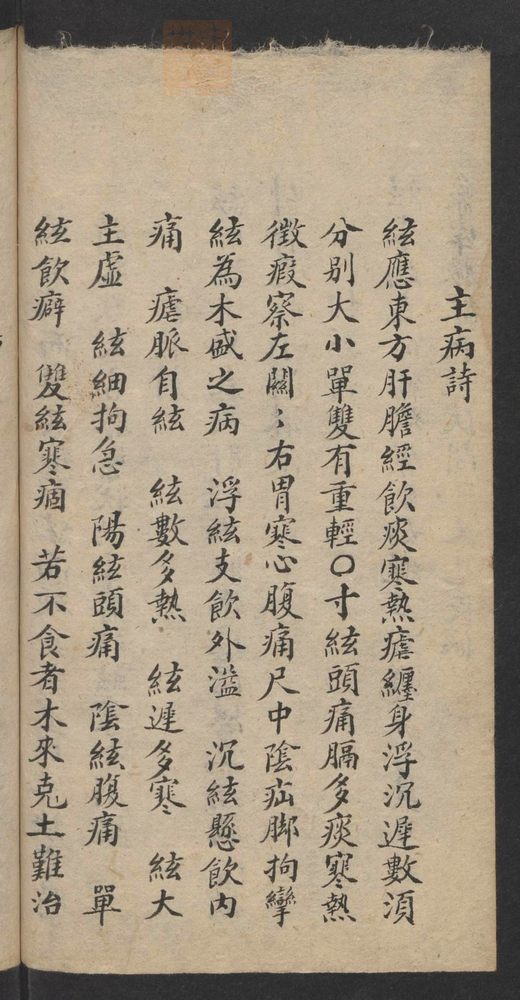 主病詩
絃應東方肝膽經飲痰寒熱瘧纏身浮沉遲數須
分別大小單雙有重輕〇寸絃頭痛膈多痰寒熱
徴瘕察左關〻右胃寒心腹痛尺中陰疝脚拘攣
絃為木盛之病　浮絃支飲外溢　沉絃懸飲内
痛　瘧脈自絃　絃數多熱　絃遲多寒　絃大
主虛　絃細拘急　陽絃頭痛　陰絃腹痛　單
絃飲癖　雙絃寒痼　若不食者木來克土難治